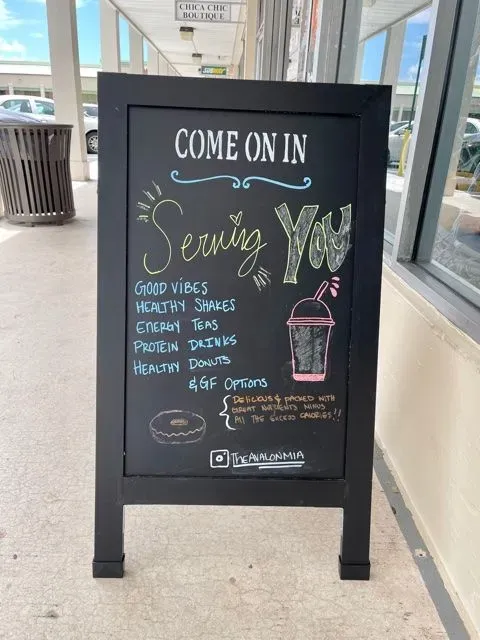 CHICA CHIC
BOUTIQUE
SUBWAY
COME ON IN
Serving YOU
GOOD VIBES
HEALTHY SHAKES
ENERGY TEAS
PROTEIN DRINKS
HEALTHY DONUTS
& GF OPTIONS
DELICIOUS & PACKED WITH
GREAT NUTRIENTS MINUS
ALL THE EXCESS CALORIES!!
THEAVALONMIA